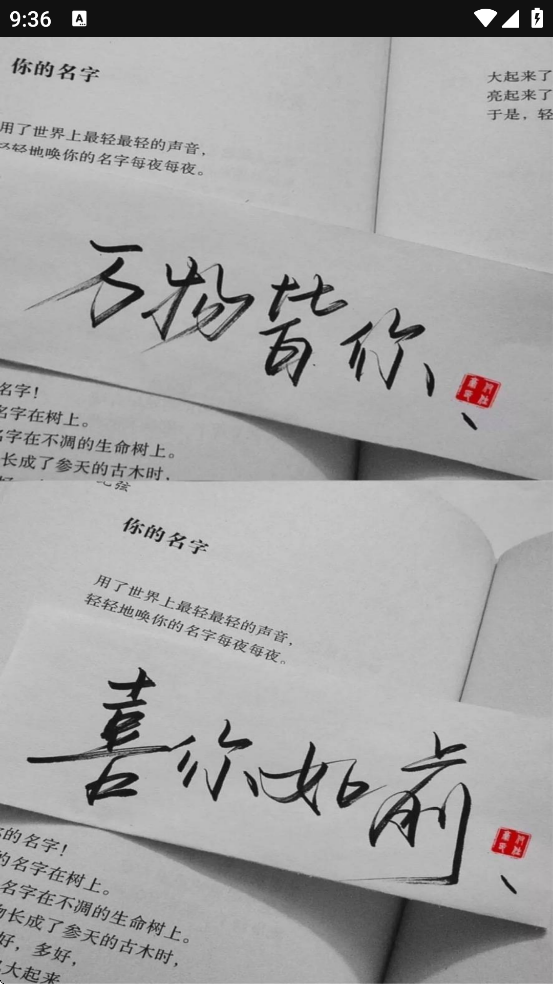 9:36
你的名字
大起来了
亮起来了
于是，轻
用了世界上最轻最轻的声音，
轻轻地唤你的名字每夜每夜。
万物皆你
名字！
名字在树上。
名字在不凋的生命树上。
长成了参天的古木时，
你的名字
用了世界上最轻最轻的声音，
轻轻地唤你的名字每夜每夜。
喜你如前
的名字！
的名字在树上。
名字在不凋的生命树上。
长成了参天的古木时，
好，多好，
大起来